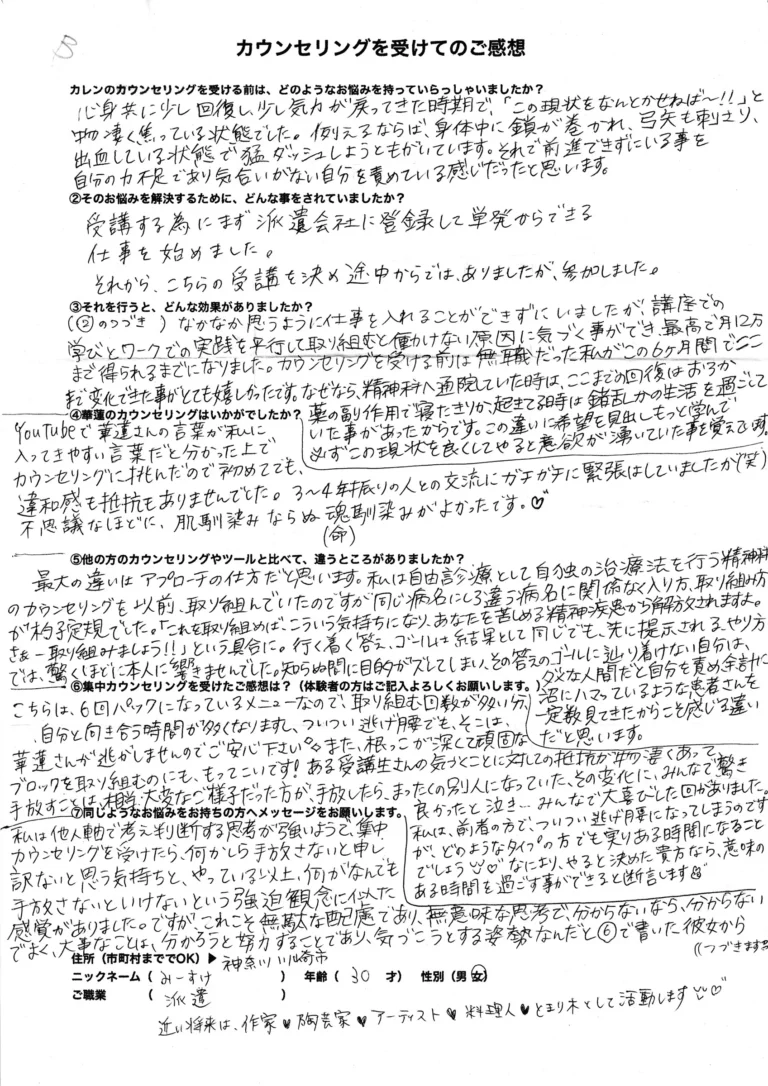 B
カウンセリングを受けてのご感想
カレンのカウンセリングを受ける前は、どのようなお悩みを持っていらっしゃいましたか?
心身共に少し回復し、少し気力が戻ってきた時期で、「この現状をなんとかせねば〜!!」と
物凄く焦っている状態でした。例えるならば、身体中に鎖が巻かれ、弓矢も刺さり、
出血している状態で猛ダッシュしようともがいています。それで前進できずにいる事を
自分の力不足であり気合いがない自分を責めている感じだったと思います。
②そのお悩みを解決するために、どんな事をされていましたか?
受講する為にまず派遣会社に登録して単発からできる
仕事を始めました。
それから、こちらの受講を決め途中からでは、ありましたが、参加しました。
③それを行うと、どんな効果がありましたか?
(②のつづき) なかなか思うように仕事を入れることができずにいましたが、講座での
学びとワークでの実践を平行して取り組むと働かけない原因に気づく事ができ、最高で月12万
まで得られるまでになりました。カウンセリングを受ける前は無職だった私がこの6ヶ月間でここ
まで変化できた事がとても嬉しかったです。なぜなら、精神科へ通院していた時は、ここまでの回復はおろか
薬の副作用で寝たきりか、起きてる時は錯乱しかの生活を過ごして
いた事があったからです。この違いに希望を見出しもっと学んで
必ずこの現状を良くしてやると意欲が湧いていた事を覚えています。
④華蓮のカウンセリングはいかがでしたか?
YouTubeで華蓮さんの言葉が私に
入ってきやすい言葉だと分かった上で
カウンセリングに挑んだので初めてでも、
違和感も抵抗もありませんでした。3〜4年振りの人との交流にガチガチに緊張はしていましたが(笑)
不思議なほどに、肌馴染みならぬ魂馴染みがよかったです。♡
(命)
⑤他の方のカウンセリングやツールと比べて、違うところがありましたか?
最大の違いはアプローチの仕方だと思います。私は自由診療として自独の治療法を行う精神科
のカウンセリングを以前、取り組んでいたのですが同じ病名にしろ違う病名に関係なく入り方、取り組み方
が杓子定規でした。「これを取り組めば、こういう気持ちになり、あなたを苦しめる精神疾患から解放されますよ。
さぁー取り組みましょう!!」という具合に。行く着く答え、ゴールは結果として同じでも、先に提示される、やり方
では、驚くほどに本人に響きませんでした。知らぬ間に目的がズレてしまい、その答えのゴールに辿り着けない自分は、
ダメな人間だと自分を責め余計に
沼にハマっているような患者さんを
一定数見てきたからこそ感じる違い
だと思います。
⑥集中カウンセリングを受けたご感想は?(体験者の方はご記入よろしくお願いします。)
こちらは、6回パックになっているメニューなので、取り組む回数が多い分
、自分と向き合う時間が多くなりますし、ついつい逃げ腰でも、そこは、
華蓮さんが逃がしませんのでご安心下さい。また、根っこが深くて頑固な
ブロックを取り組むのにも、もってこいです!ある受講生さんの気づくことに対しての抵抗が物凄くあって
手放すことは、相当、大変なご様子だった方が、手放したら、まったくの別人になっていた、その変化に、みんなで驚き
良かったと泣き…みんなで大喜びした回がありました。
私は、前者の方で、ついつい逃げ腰になってしまうのです
が、どのようなタイプの方でも実りある時間になること
でしょう♡ なにより、やると決めた貴方なら、意味の
ある時間を過ごす事ができると断言します
⑦同じようなお悩みをお持ちの方へメッセージをお願いします。
私は他人軸で考え判断する思考が強いようで、集中
カウンセリングを受けたら、何かしら手放さないと申し
訳ないと思う気持ちと、やっている以上、何がなんでも
手放さないといけないという強迫観念に似た
感覚がありました。ですが、これこそ無駄な配慮であり、無意味な思考で、分からないなら、分からない
でよく、大事なことは、分かろうと努力することであり、気づこうとする姿勢なんだと⑥で書いた彼女から
((つづきます
住所(市町村まででOK)▶神奈川 川崎市
ニックネーム(みーすけ) 年齢(30才) 性別(男・女)
ご職業(派遣)
近い将来は、作家♥陶芸家♥アーティスト♥料理人♥とまり木として活動します♡